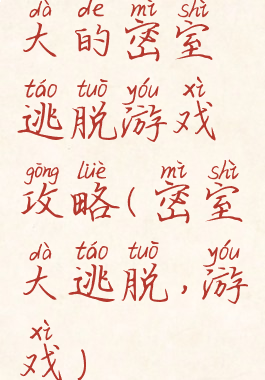 dà de mì shì
大的密室
táo tuō yóu xì
逃脱游戏
gōng lüè mì shì
攻略(密室
dà táo tuō yóu
大逃脱,游
xì
戏)